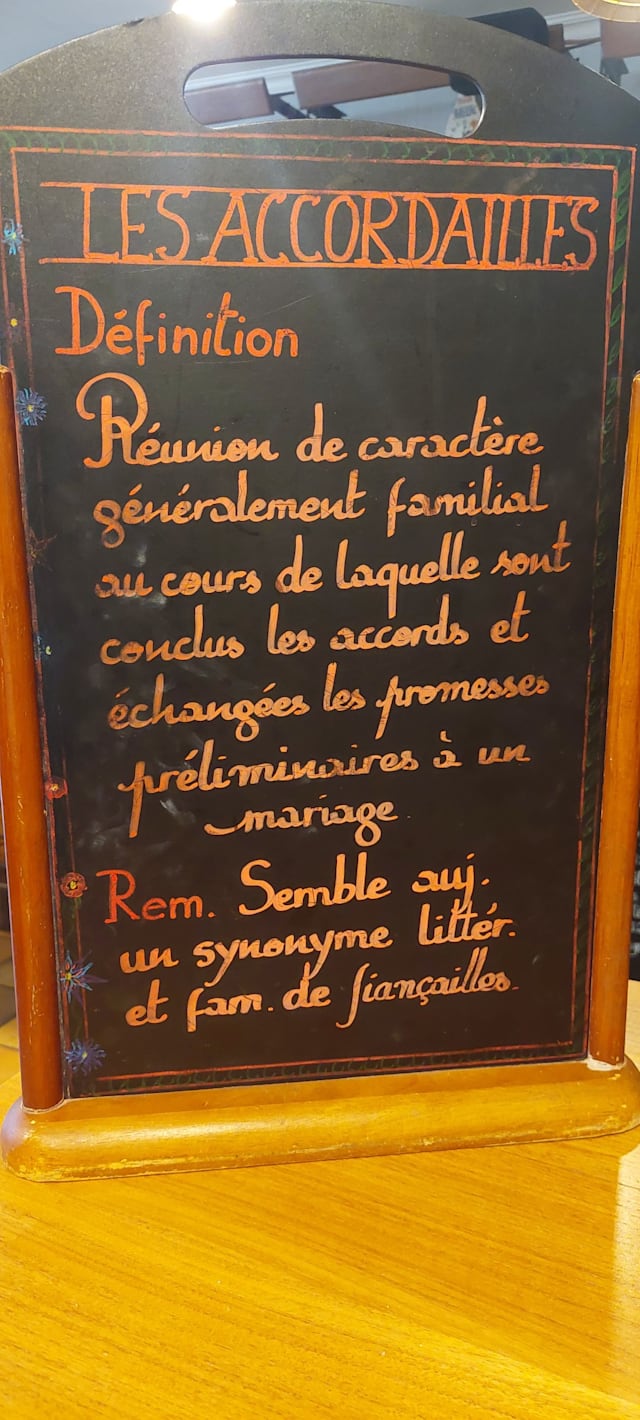 LES ACCORDAILLES
Définition
Réunion de caractère
généralement familial
au cours de laquelle sont
conclus les accords et
échangées les promesses
préliminaires à un
mariage.
Rem. Semble auj.
un synonyme littér.
et fam. de fiançailles.